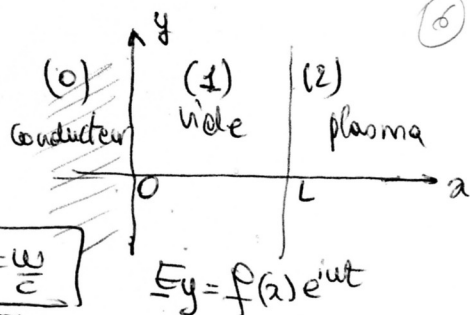 6
y
(0) (1) (2)
conducteur vide plasma
O L x
= ω/c
E̲y = f̲(x) e^{iωt}